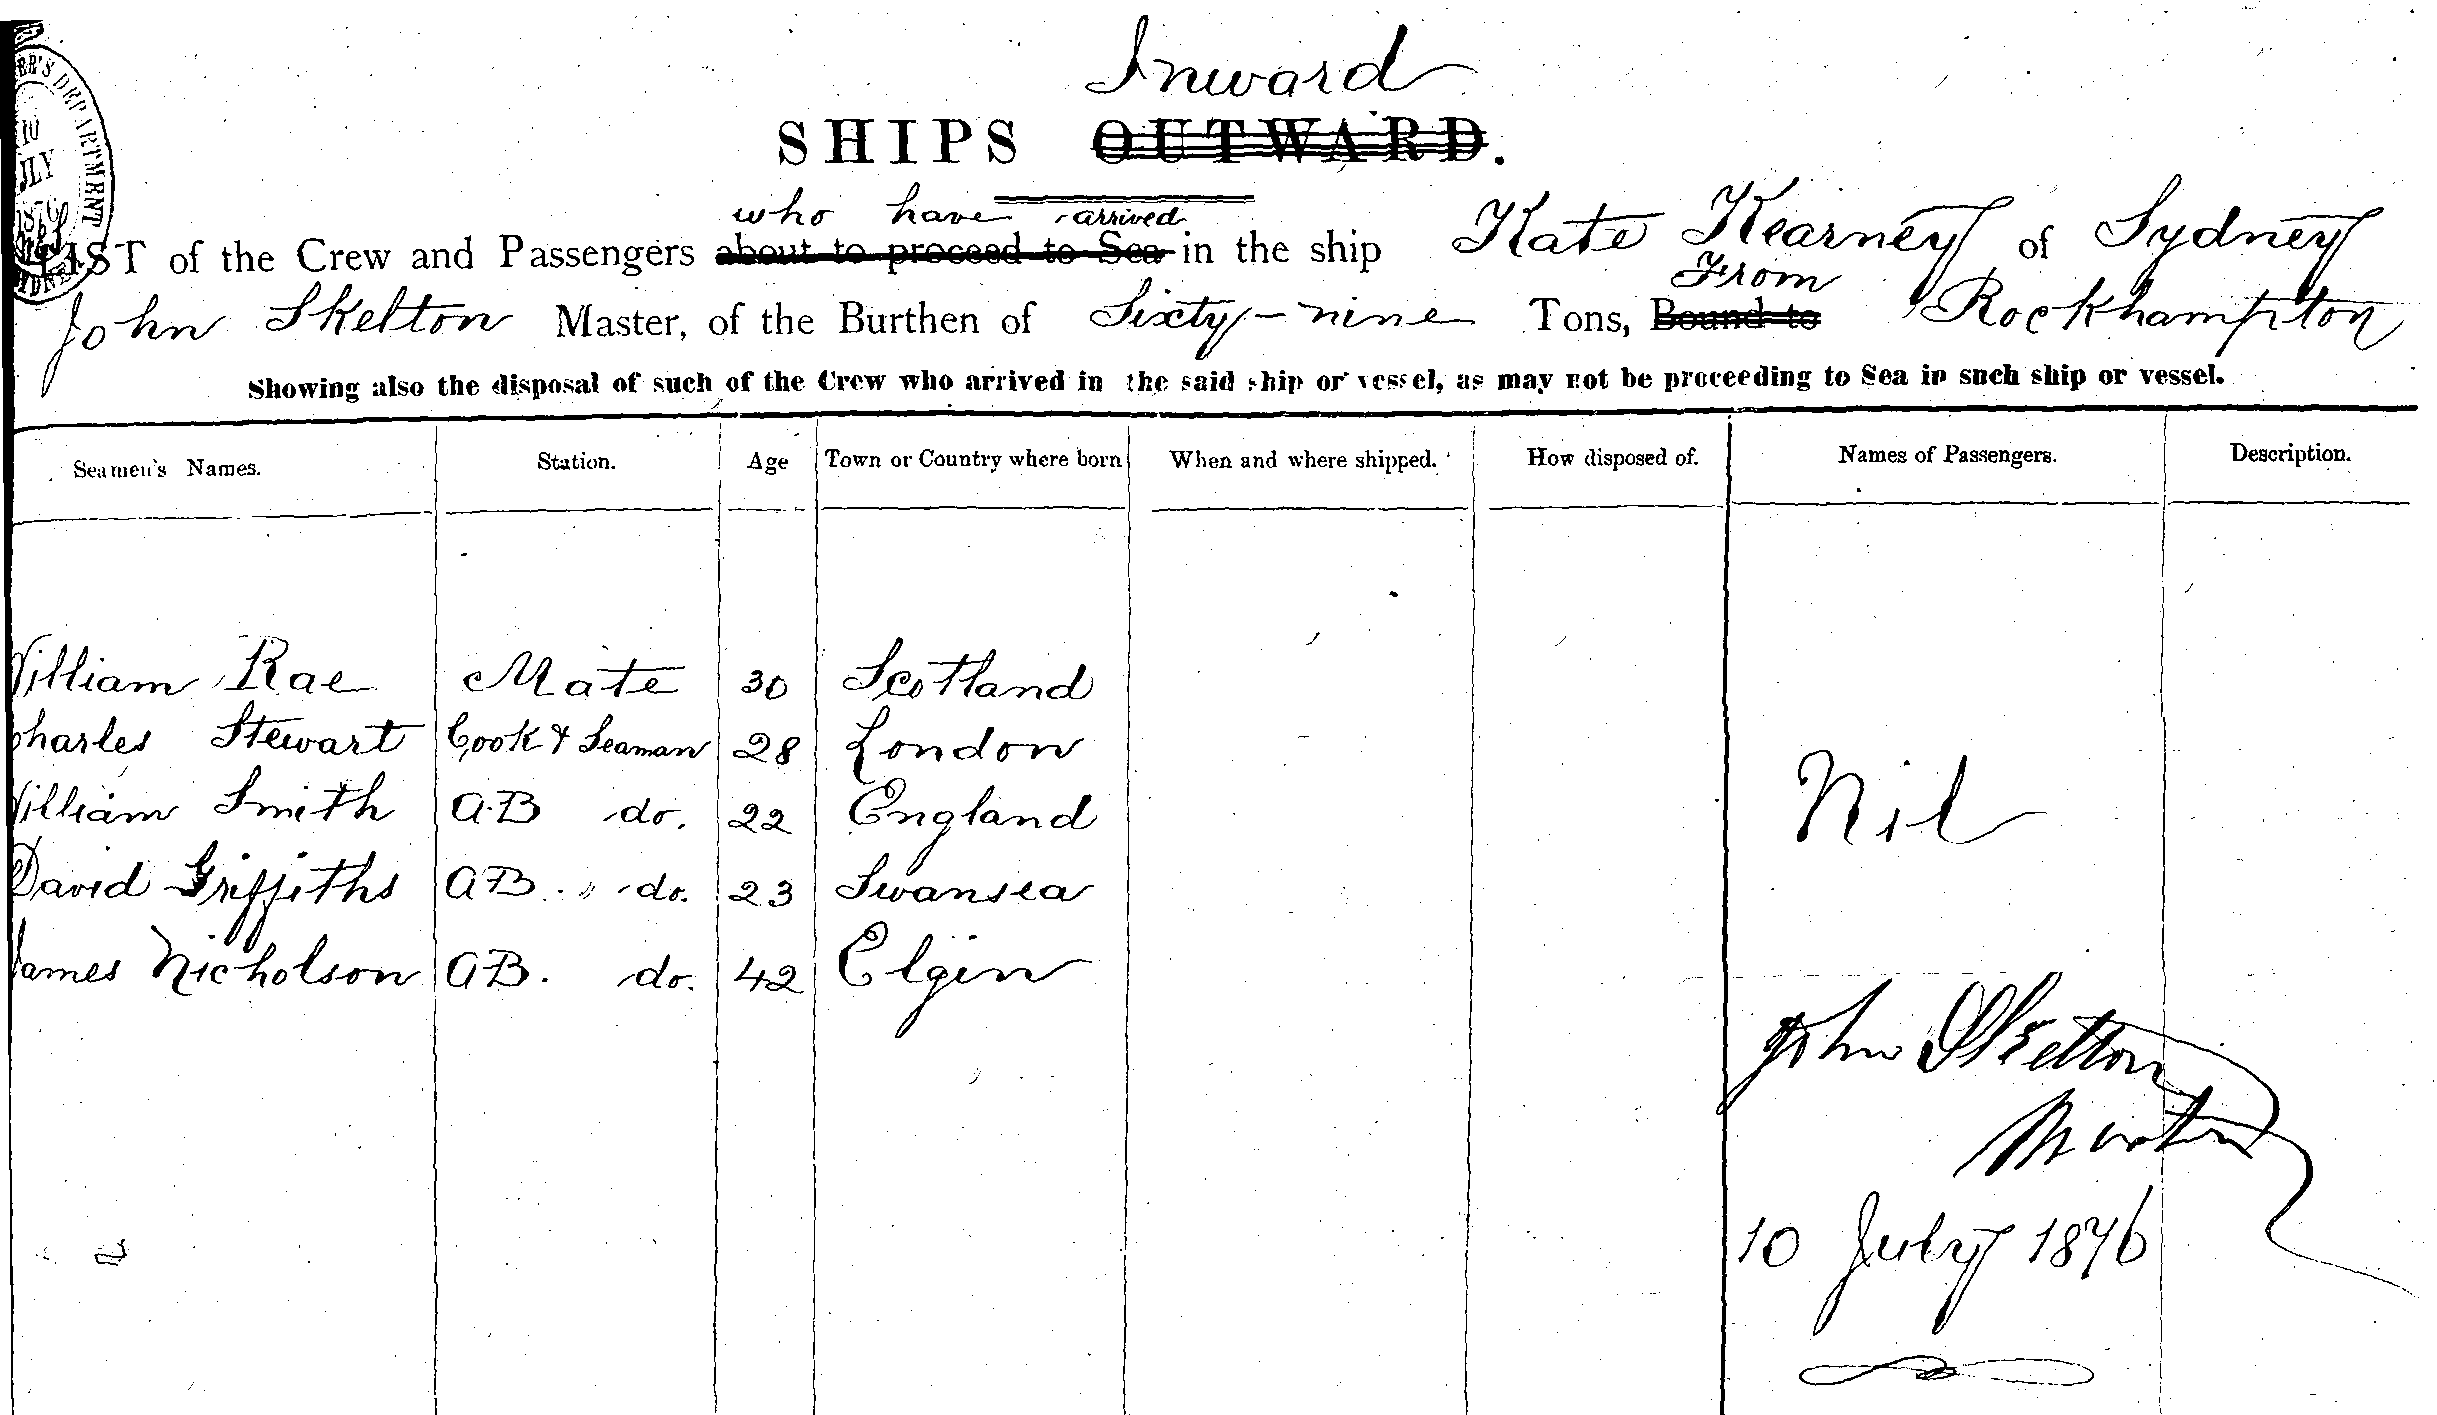 Inward
SHIPS OUTWARD.
who have arrived
LIST of the Crew and Passengers about to proceed to Sea in the ship Kate Kearney of Sydney
From
John Skelton Master, of the Burthen of Sixty-nine Tons, Bound to Rockhampton
Showing also the disposal of such of the Crew who arrived in the said ship or vessel, as may not be proceeding to Sea in such ship or vessel.
Seamen's Names. Station. Age Town or Country where born When and where shipped. How disposed of. Names of Passengers. Description.
William Rae Mate 30 Scotland
Charles Stewart Cook & Seaman 28 London
William Smith A.B do. 22 England
Nil
David Griffiths AB. " do. 23 Swansea
James Nicholson AB. do. 42 Elgin
John Skelton
Master
10 July 1876
DEPARTMENT
10
JLY